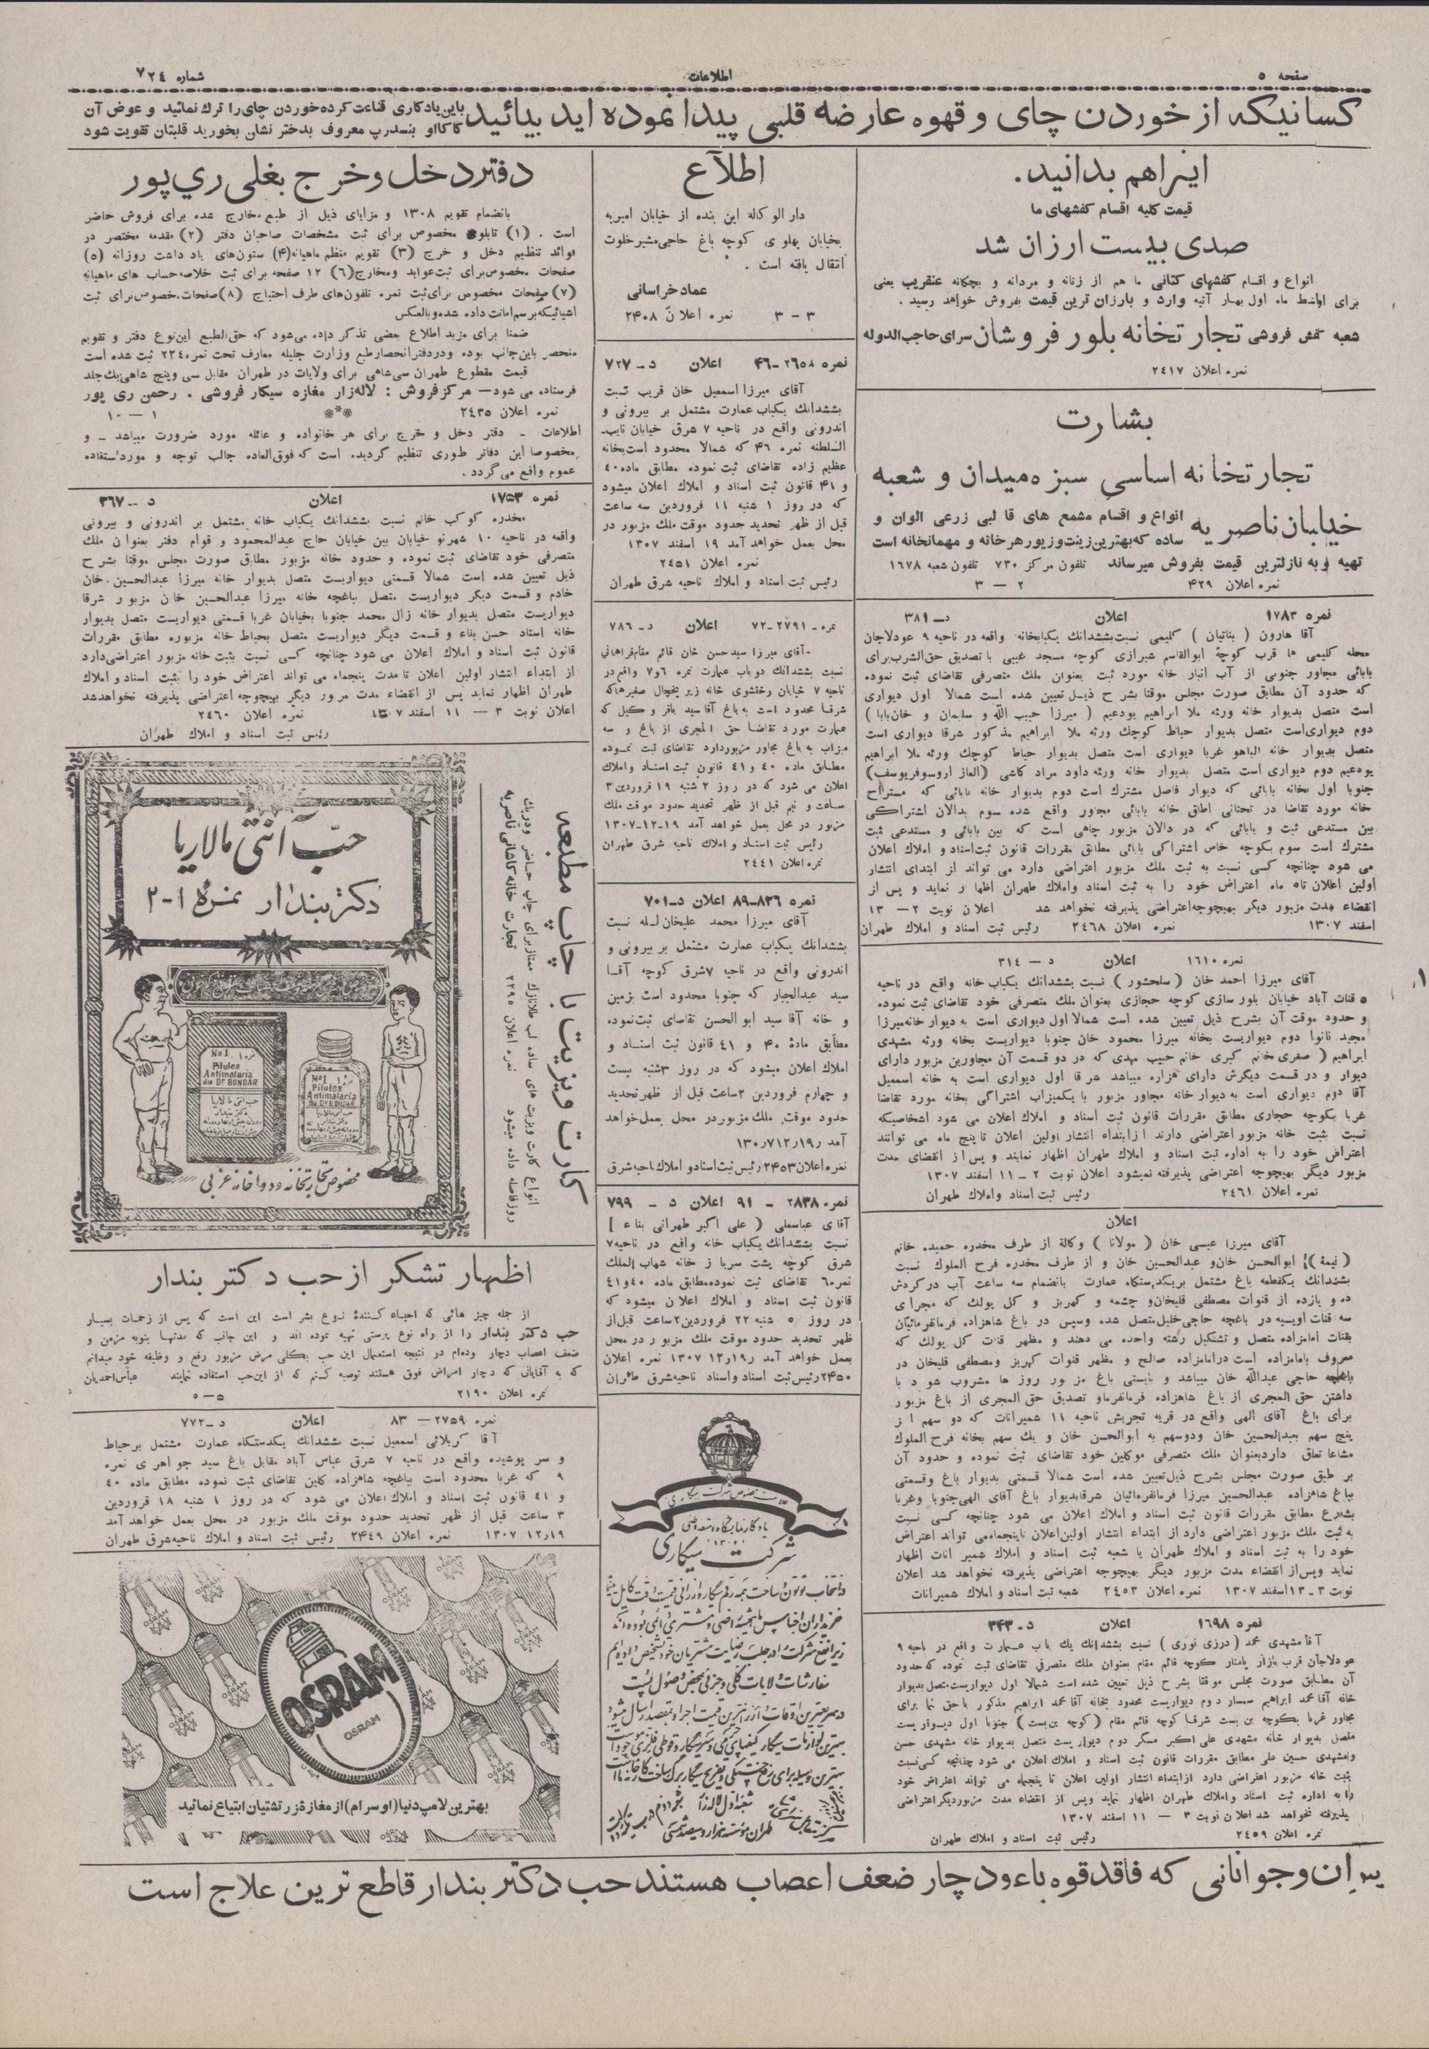 صفحه ٥
اطلاعات
شماره ٧٢٤
کسانیکه از خوردن چای و قهوه عارضه قلبی پیدا نموده اید بیائید
باین یادکاری قناعت کرده خوردن چای را ترك نمائید و عوض آن
کاکااو بنسدرپ معروف بدختر نشان بخورید قلبتان تقویت شود
اینراهم بدانید.
قیمت کلیه اقسام کفشهای ما
صدی بیست ارزان شد
انواع و اقسام کفشهای کتانی ما هم از زنانه و مردانه و بچکانه عنقریب یعنی
برای اواسط ماه اول بهار آتیه وارد و بارزان ترین قیمت بفروش خواهد رسید .
شعبه کفش فروشی تجارتخانه بلور فروشان سرای حاجب الدوله
نمره اعلان ٢٤١٧
بشارت
تجارتخانه اساسی سبزه میدان و شعبه
خیابان ناصریه
انواع و اقسام مشمع های قالبی زرعی الوان و
ساده که بهترین زینت و زیور هر خانه و مهمانخانه است
تهیه و به نازلترین قیمت بفروش میرساند تلفون مرکز ٧٣٠ تلفون شعبه ١٦٧٨
نمره اعلان ٤٢٩ ٢ — ٣
نمره ١٧٨٣ اعلان د-٣٨١
آقا هارون ( بنائیان ) کلیمی نسبت بششدانك یکبابخانه واقعه در ناحیه ٩ عودلاجان
محله کلیمی ها قرب کوچه ابوالقاسم شیرازی کوچه مسجد غیبی با تصدیق حق الشرب برای
بابائی مجاور جنوبی از آب انبار خانه مورد ثبت بعنوان ملك متصرفی تقاضای ثبت نموده
که حدود آن مطابق صورت مجلس موقتا بشرح ذیل تعیین شده است شمالا اول دیواری
است متصل بدیوار خانه ورثه ملا ابراهیم یودعیم ( میرزا حبیب الله و سلیمان و خان بابا )
دوم دیواری است متصل بدیوار حیاط کوچك ورثه ملا ابراهیم مذکور شرقا دیواری است
متصل بدیوار خانه الیاهو غربا دیواری است متصل بدیوار حیاط کوچك ورثه ملا ابراهیم
یودعیم دوم دیواری است متصل بدیوار خانه ورثه داود مراد کاشی
جنوبا اول بخانه بابائی که دیوار فاصل مشترك است دوم بدیوار خانه بابائی که مستراح
خانه مورد تقاضا در تحتانی اطاق خانه بابائی مجاور واقع شده سوم بدالان اشتراکی
بین مستدعی ثبت و بابائی که در دالان مزبور چاهی است که بین بابائی و مستدعی ثبت
مشترك است سوم بکوچه خاص اشتراکی بابائی مطابق مقررات قانون ثبت اسناد و املاك اعلان
می شود چنانچه کسی نسبت به ثبت ملك مزبور اعتراضی دارد می تواند از ابتدای انتشار
اولین اعلان تا٥ ماه اعتراض خود را به ثبت اسناد و املاك طهران اظهار نماید و پس از
انقضاء مدت مزبور دیگر بهیچوجه اعتراضی پذیرفته نخواهد شد اعلان نوبت ٢ — ١٣
اسفند ١٣٠٧ نمره اعلان ٢٤٦٨ رئیس ثبت اسناد و املاك طهران
نمره ١٦١٠ اعلان د — ٣١٤
آقای میرزا احمد خان ( سلحشور ) نسبت بششدانك یکباب خانه واقع در ناحیه
٥ قنات آباد خیابان بلور سازی کوچه حجازی بعنوان ملك متصرفی خود تقاضای ثبت نموده
و حدود موقت آن بشرح ذیل تعیین شده است شمالا اول دیواری است به دیوار خانه میرزا
مجید نانوا دوم دیواریست بخانه میرزا محمود خان جنوبا دیواریست بخانه ورثه مشهدی
ابراهیم ( صغری خانم کبری خانم حبیب مهدی که در دو قسمت آن مجاورین مزبور دارای
دیوار و در قسمت دیگرش دارای هزاره میباشد شرقا اول دیواری است به خانه اسمعیل
آقا دوم دیواری است به دیوار خانه مجاور مزبور با یکمیزاب اشتراکی بخانه مورد تقاضا
غربا بکوچه حجازی مطابق مقررات قانون ثبت اسناد و املاك اعلان می شود اشخاصیکه
نسبت بثبت خانه مزبور اعتراضی دارند ازابتداء انتشار اولین اعلان تا پنج ماه می توانند
اعتراض خود را به اداره ثبت اسناد و املاك طهران اظهار نمایند و پس از انقضای مدت
مزبور دیگر بهیچوجه اعتراضی پذیرفته نمیشود اعلان نوبت ٢ - ١١ اسفند ١٣٠٧
نمره اعلان ٢٤٦١ رئیس ثبت اسناد واملاك طهران
اعلان
آقای میرزا عیسی خان ( مولانا ) وکالة از طرف مخدره حمیده خانم
ابوالحسن خان و عبدالحسین خان و از طرف مخدره فرح الملوك نسبت
بششدانك یکقطعه باغ مشتمل بریکدستگاه عمارت بانضمام سه ساعت آب درگردش
ده و یازده از قنوات مصطفی قلیخان و چشمه و کهریز و کل یولك که مجرای
سه قنات اویسیه در باغچه حاجی خلیل متصل شده وسپس در باغ شاهزاده فرمانفرمائیان
بقنات امامزاده متصل و تشکیل رشته واحده می دهند و مظهر قنات کل یولك که
معروف بامامزاده است درامامزاده صالح و مظهر قنوات کهریز ومصطفی قلیخان در
باغچه حاجی عبدالله خان میباشد و بایستی باغ مزبور روز ها مشروب شود با
داشتن حق المجری از باغ شاهزاده فرمانفرماو تصدیق حق المجری از باغ مزبور
برای باغ آقای الهی واقع در قریه تجریش ناحیه ١١ شمیرانات که دو سهم از
پنج سهم بعبدالحسین خان ودوسهم به ابوالحسن خان و یك سهم بخانه فرح الملوك
مشاعا تعلق داردبعنوان ملك متصرفی موکلین خود تقاضای ثبت نموده و حدود آن
بر طبق صورت مجلس بشرح ذیل تعیین شده است شمالا قسمتی بدیوار باغ وقسمتی
بباغ شاهزاده عبدالحسین میرزا فرمانفرمائیان شرقابدیوار باغ آقای الهی جنوبا وغربا
بشارع مطابق مقررات قانون ثبت اسناد و املاك اعلان می شود چنانچه کسی نسبت
به ثبت ملك مزبور اعتراضی دارد از ابتداء انتشار اولین اعلان تاپنجماه می تواند اعتراض
خود را به ثبت اسناد و املاك طهران یا شعبه ثبت اسناد و املاك شمیرانات اظهار
نماید وپس از انقضاء مدت مزبور دیگر بهیچوجه اعتراضی پذیرفته نخواهد شد اعلان
نوبت ٣ - ١٣ اسفند ١٣٠٧ نمره اعلان ٢٤٥٣ شعبه ثبت اسناد و املاك شمیرانات
نمره ١٦٩٨ اعلان د - ٣٤٣
آقا مشهدی محمد ( درزی نوری ) نسبت بششدانك یك باب عمارت واقع در ناحیه ٩
عودلاجان قرب بازار پامنار کوچه قائم مقام بعنوان ملك متصرفی تقاضای ثبت نموده که حدود
آن مطابق صورت مجلس موقتا بشرح ذیل تعیین شده است شمالا اول دیواریست متصل بدیوار
خانه آقا محمد ابراهیم سمسار دوم دیواریست محدود بخانه آقا محمد ابراهیم مذکور با حق نما برای
مجاور غربا بکوچه بن بست شرقا کوچه قائم مقام (کوچه بن بست) جنوبا اول دیواریست
متصل بدیوار خانه مشهدی علی اکبر مسگر دوم دیواریست متصل بدیوار خانه مشهدی حسن
ومشهدی حسین علی مطابق مقررات قانون ثبت اسناد و املاك اعلان می شود چنانچه کسی نسبت
بثبت خانه مزبور اعتراضی دارد ازابتداء انتشار اولین اعلان تا پنجماه می تواند اعتراض خود
را به اداره ثبت اسناد واملاك طهران اظهار نماید وپس از انقضاء مدت مزبوردیگر اعتراضی
پذیرفته نخواهد شد اعلان نوبت ٣ — ١١ اسفند ١٣٠٧
نمره اعلان ٢٤٥٩ رئیس ثبت اسناد و املاك طهران
اطلاع
دارالوکاله این بنده از خیابان امیریه
بخیابان پهلوی کوچه باغ حاجی مشیر خلوت
انتقال یافته است .
عماد خراسانی
٣ — ٣ نمره اعلان ٢٤٠٨
نمره ٢٦٥٨-٤٦ اعلان د- ٧٢٧
آقای میرزا اسمعیل خان قریب نسبت
بششدانك یکباب عمارت مشتمل بر بیرونی و
اندرونی واقع در ناحیه ٧ شرق خیابان نایب
السلطنه نمره ٤٦ که شمالا محدود است بخانه
عظیم زاده تقاضای ثبت نموده مطابق ماده ٤٠
و ٤١ قانون ثبت اسناد و املاك اعلان میشود
که در روز ١ شنبه ١١ فروردین سه ساعت
قبل از ظهر تحدید حدود موقت ملك مزبور در
محل بعمل خواهد آمد ١٩ اسفند ١٣٠٧
نمره اعلان ٢٤٥١
رئیس ثبت اسناد و املاك ناحیه شرق طهران
نمره ٢٧٩١-٧٢ اعلان د- ٧٨٦
آقای میرزا سیدحسن خان قائم مقام فراهانی
نسبت بششدانك دوباب عمارت نمره ٦و٧ واقع در
ناحیه ٧ خیابان رختشوی خانه زیر یخچال صفیرها که
شرقا محدود است به باغ آقا سید باقر وکیل که
عمارت مورد تقاضا حق المجری از باغ و سه
میزاب به باغ مجاور مزبوردارد تقاضای ثبت نموده
مطابق ماده ٤٠ و ٤١ قانون ثبت اسناد واملاك
اعلان می شود که در روز ٢ شنبه ١٩ فروردین ٣
ساعت و نیم قبل از ظهر تحدید حدود موقت ملك
مزبور در محل بعمل خواهد آمد ١٩-١٢-١٣٠٧
رئیس ثبت اسناد و املاك ناحیه شرق طهران
نمره اعلان ٢٤٤١
نمره ٨٢٦-٨٩ اعلان د-٧٠١
آقای میرزا محمد علیخان لله نسبت
بششدانك یکباب عمارت مشتمل بر بیرونی و
اندرونی واقع در ناحیه ٧شرق کوچه آقا
سید عبدالجبار که جنوبا محدود است بزمین
و خانه آقا سید ابوالحسن تقاضای ثبت نموده
مطابق مادۀ ٤٠ و ٤١ قانون ثبت اسناد و
املاك اعلان میشود که در روز ٣شنبه بیست
و چهارم فروردین ٢ساعت قبل از ظهر تحدید
حدود موقت ملك مزبور در محل بعمل خواهد
آمد ١٩ر١٢ر١٣٠٧
نمره اعلان ٢٤٥٣ رئیس ثبت اسنادو املاك ناحیه شرق
نمره ٢٨٣٨ - ٩١ اعلان د - ٧٩٩
آقای عباسعلی ( علی اکبر طهرانی بناء ]
نسبت بششدانك یکباب خانه واقع در ناحیه ٧
شرق کوچه پشت سرباز خانه شهاب الملك
نمره ٦ تقاضای ثبت نموده مطابق ماده ٤٠و٤١
قانون ثبت اسناد و املاك اعلان میشود که
در روز ٥ شنبه ٢٢ فروردین ٢ساعت قبل از
ظهر تحدید حدود موقت ملك مزبور در محل
بعمل خواهد آمد ١٩ر١٢ر١٣٠٧ نمره اعلان
٢٤٥٠ رئیس ثبت اسناد واسناد ناحیه شرق طهران
علامت مخصوص شرکت سیگاری
شرکت سیگاری
دفتردخل وخرج بغلی ری پور
بانضمام تقویم ١٣٠٨ و مزایای ذیل از طبع خارج شده برای فروش حاضر
است . (١) تابلو مخصوص برای ثبت مشخصات صاحبان دفتر (٢) مقدمه مختصر در
فوائد تنظیم دخل و خرج (٣) تقویم منظم ماهیانه (٤) ستون‌های یاد داشت روزانه (٥)
صفحات مخصوص برای ثبت عواید ومخارج (٦) ١٢ صفحه برای ثبت خلاصه حساب های ماهیانه
(٧) صفحات مخصوص برای ثبت نمره تلفون‌های طرف احتیاج (٨) صفحات مخصوص برای ثبت
اشیائیکه برسم امانت داده شده و بالعکس
ضمنا برای مزید اطلاع بعضی تذکر داده می‌شود که حق الطبع این نوع دفتر و تقویم
منحصر باین جانب بوده ودردفتر انحصار طبع وزارت جلیله معارف تحت نمره ٢٢٤ ثبت شده است
قیمت مقطوع طهران سی شاهی برای ولایات در طهران مقابل سی وپنج شاهی یك جلد
فرستاده می شود— مرکز فروش : لاله زار مغازه سیگار فروشی . رحمن ری پور
نمره اعلان ٢٤٣٥ *** ١ — ١٠
اطلاعات - دفتر دخل و خرج برای هر خانواده و عائله مورد ضرورت میباشد - و
مخصوصا این دفاتر طوری تنظیم گردیده است که فوق العاده جالب توجه و مورد استفاده
عموم واقع می گردد .
نمره ١٧٥٣ اعلان د -- ٣٦٧
مخدره کوکب خانم نسبت بششدانك یکباب خانه مشتمل بر اندرونی و بیرونی
واقعه در ناحیه ١٠ شهرنو خیابان بین خیابان حاج عبدالمحمود و قوام دفتر بعنوان ملك
متصرفی خود تقاضای ثبت نموده و حدود خانه مزبور مطابق صورت مجلس موقتا بشرح
ذیل تعیین شده است شمالا قسمتی دیواریست متصل بدیوار خانه میرزا عبدالحسین خان
خادم و قسمت دیگر دیواریست متصل بباغچه خانه میرزا عبدالحسین خان مزبور شرقا
دیواریست متصل بدیوار خانه زال محمد جنوبا بخیابان غربا قسمتی دیواریست متصل بدیوار
خانه استاد حسن بناء و قسمت دیگر دیواریست متصل بحیاط خانه مزبوره مطابق مقررات
قانون ثبت اسناد و املاك اعلان می شود چنانچه کسی نسبت بثبت خانه مزبور اعتراضی دارد
از ابتداء انتشار اولین اعلان تا مدت پنجماه می تواند اعتراض خود را بثبت اسناد واملاك
طهران اظهار نماید پس از انقضاء مدت مزبور دیگر بهیچوجه اعتراضی پذیرفته نخواهدشد
اعلان نوبت ٣ — ١١ اسفند ١٣٠٧ نمره اعلان ٢٤٦٠
رئیس ثبت اسناد و املاك طهران
کارت ویزیت با چاپ مطبعه
انواع کارت ویزیت های ساده لب طلانازك ممتاز برای چاپ حاضر ودریك
روزفاصله داده میشود نمره اعلان ٢٢٩٥ تجارت خانه کاشانی ناصریه
حبّ آنتی مالاریا
دکتر بندار نمرۀ ١-٢
No1 نمره ١
Pilules
Antimalaria
du Dr BONDAR
حب آنتی مالاریا
No1 نمره ١
Pilules
Antimalaria
du Dr BONDAR
مخصوص تجارتخانه و دواخانه غربی
اظهار تشکر از حب دکتر بندار
از جمله چیز هائی که احیاء کنندۀ نوع بشر است این است که پس از زحمات بسیار
حب دکتر بندار را از راه نوع پرستی تهیه نموده اند و این جانب که مدتها بنوبه مزمن و
ضعف اعصاب دچار بودم در نتیجه استعمال این حب بکلی مرض مزبور رفع و وظیفه خود میدانم
که به آقایانی که دچار امراض فوق هستند توصیه کنم که از این حب استفاده نمایند عباس احمدیان
نمره اعلان ٢١٩٠ ٥ — ٥
نمره ٢٧٥٩ — ٨٣ اعلان د -٧٧٢
آقا کربلائی اسمعیل نسبت بششدانك یکدستگاه عمارت مشتمل برحیاط
و سر پوشیده واقع در ناحیه ٧ شرق عباس آباد مقابل باغ سید جواهری نمره
٩ که غربا محدود است بباغچه شاهزاده کلین تقاضای ثبت نموده مطابق ماده ٤٠
و ٤١ قانون ثبت اسناد و املاك اعلان می شود که در روز ١ شنبه ١٨ فروردین
٣ ساعت قبل از ظهر تحدید حدود موقت ملك مزبور در محل بعمل خواهد آمد
١٩ر١٢ر١٣٠٧ نمره اعلان ٢٤٤٩ رئیس ثبت اسناد و املاك ناحیه شرق طهران
OSRAM
OSRAM
بهترین لامپ دنیا (اوسرام) از مغازه زرتشتیان ابتیاع نمائید
پیران و جوانانی که فاقد قوه باءودچار ضعف اعصاب هستند حب دکتر بندار قاطع ترین علاج است